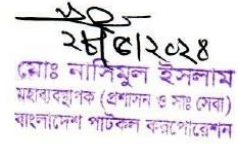 ২৮/৫/২০২৪
মোঃ নাসিমুল ইসলাম
মহাব্যবস্থাপক (প্রশাসন ও সাঃ সেবা)
বাংলাদেশ পাটকল করপোরেশন